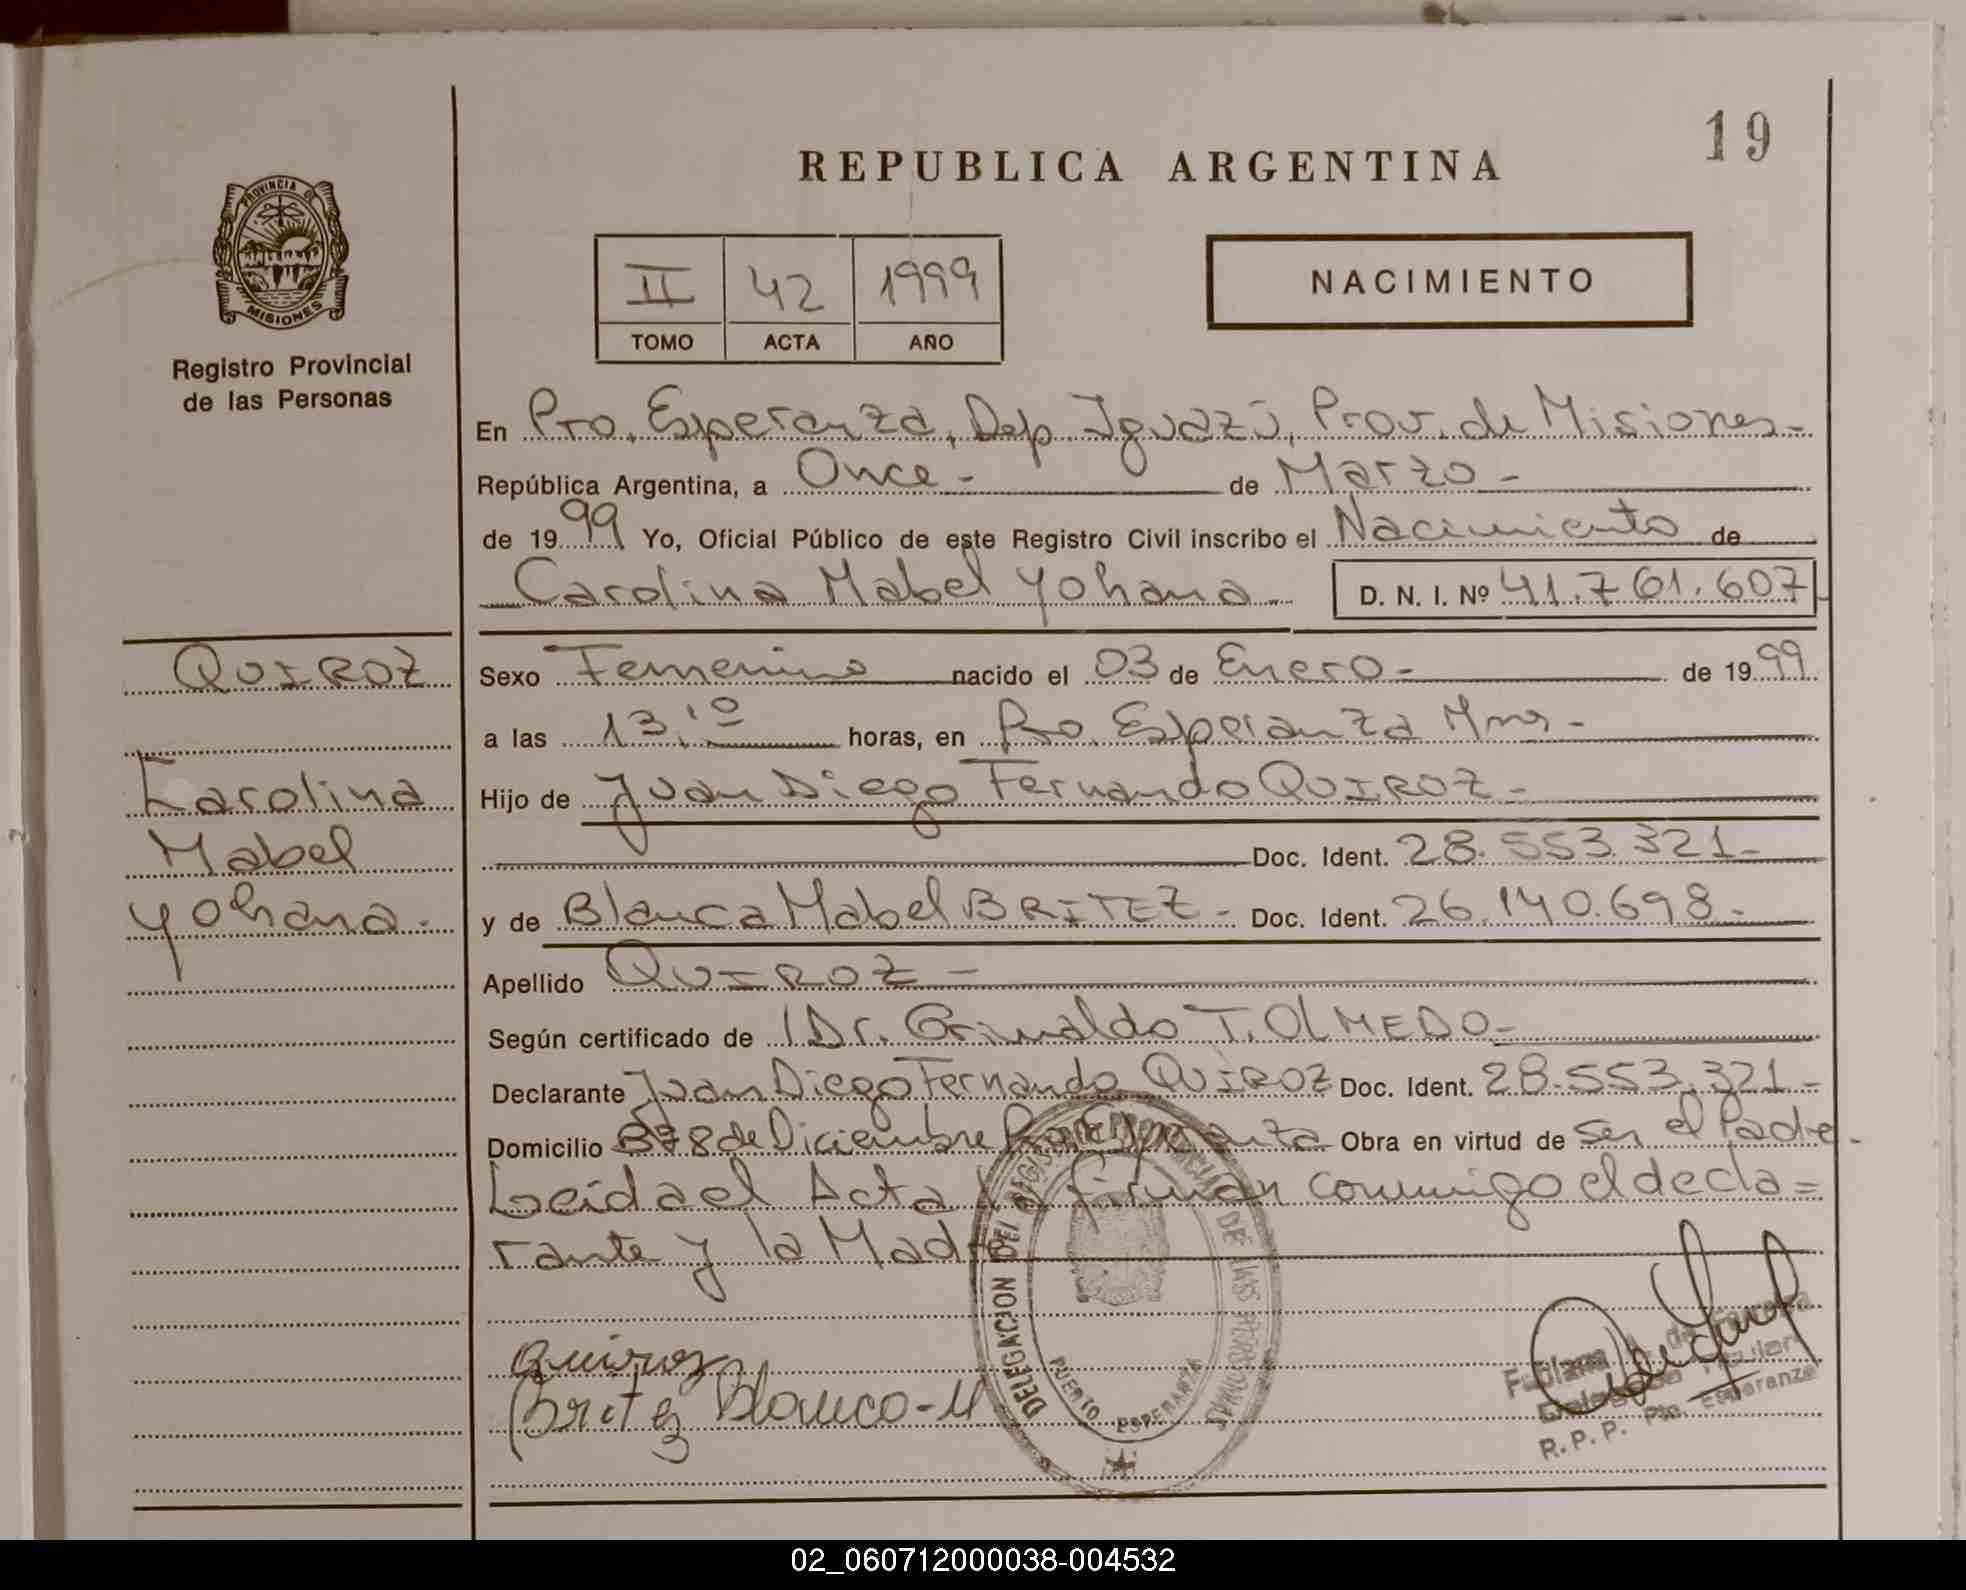 19
REPUBLICA ARGENTINA
PROVINCIA DE
MISIONES
Registro Provincial
de las Personas
II 42 1999
TOMO ACTA AÑO
NACIMIENTO
En Pto. Esperanza, Dep. Iguazú, Prov. de Misiones-
República Argentina, a Once - de Marzo -
de 1999 Yo, Oficial Público de este Registro Civil inscribo el Nacimiento de
Carolina Mabel Yohana- D. N. I. Nº 41.761.607
QUIROZ
Karolina
Mabel
Yohana.
Sexo Femenino nacido el 03 de Enero - de 1999
a las 13:º horas, en Pto. Esperanza Mnes -
Hijo de Juan Diego Fernando QUIROZ -
Doc. Ident. 28.553.321-
y de Blanca Mabel BRITEZ - Doc. Ident. 26.140.698-
Apellido QUIROZ -
Según certificado de Dr. Grinaldo T. OLMEDO-
Declarante Juan Diego Fernando QUIROZ Doc. Ident. 28.553.321-
Domicilio Bº 8 de Diciembre Pto. Esperanza Obra en virtud de ser el Padre-
Leida el Acta la firman conmigo el decla=
rante y la Madre
Quiroz
Britez Blanca-M
DELEGACION DEL REGISTRO PROVINCIAL DE LAS PERSONAS
PUERTO ESPERANZA
Fabiana de
Delegado Titular
R.P.P. Pto. Esperanza
02_060712000038-004532